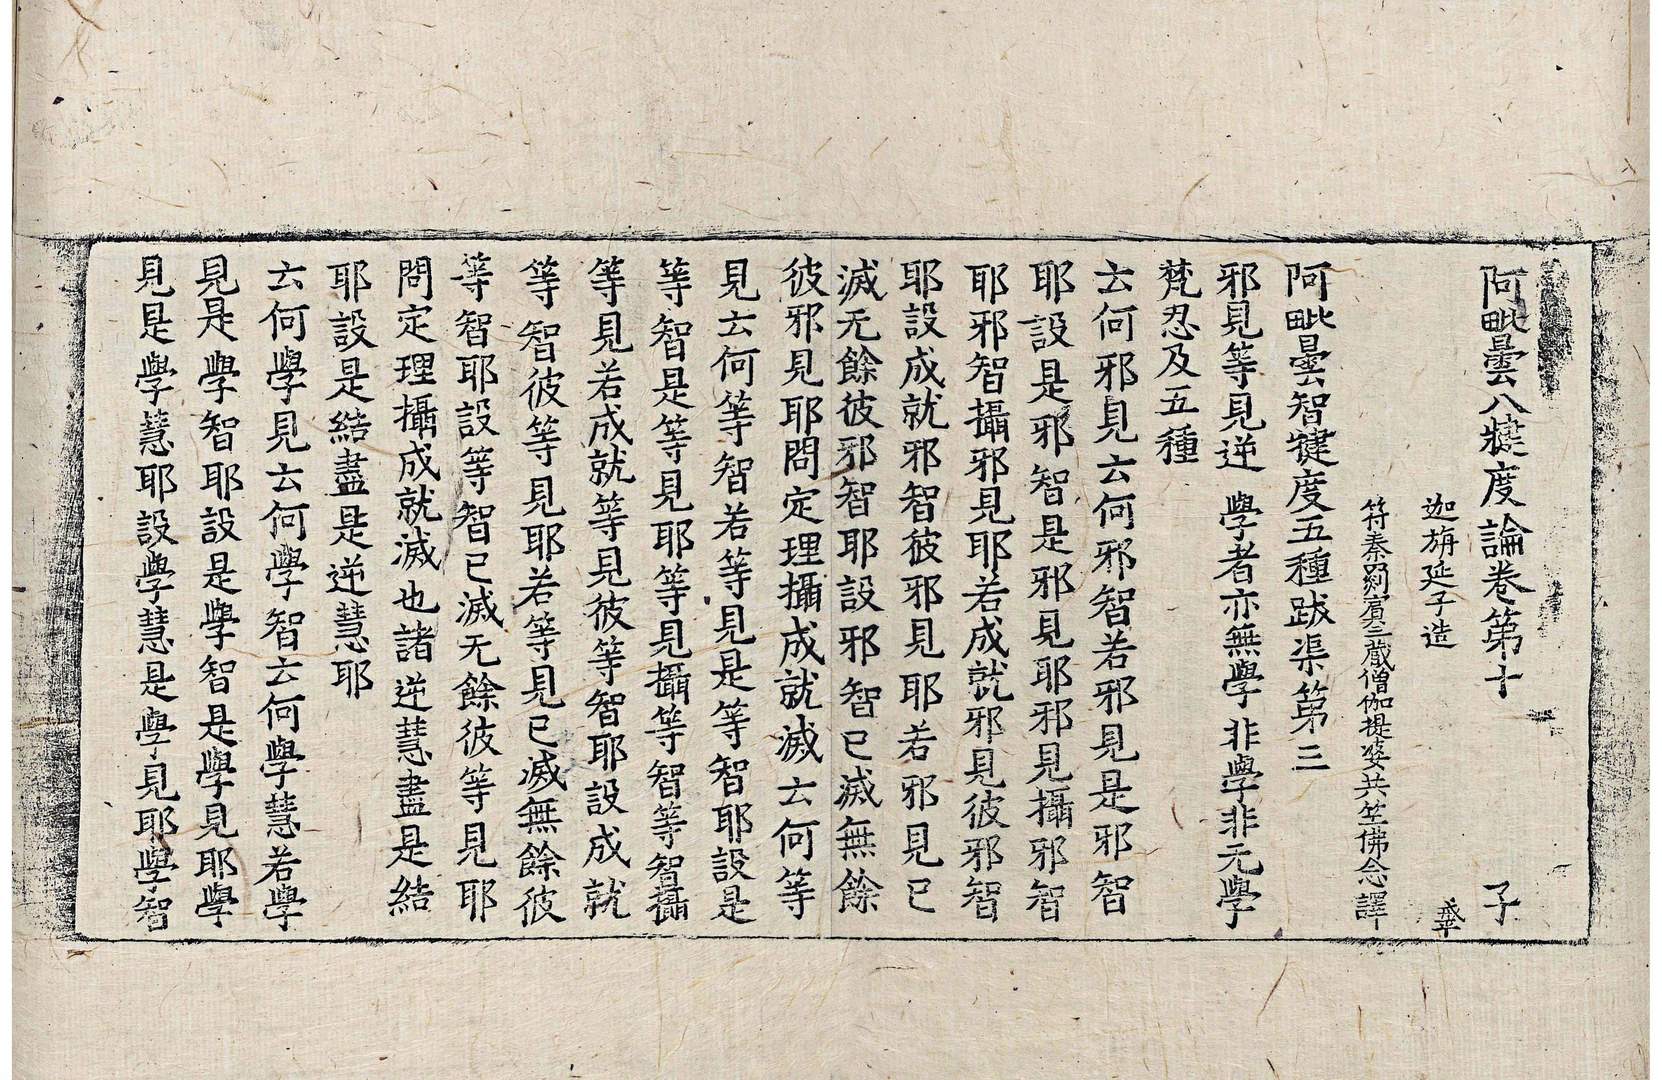 阿毗曇八犍度論卷第十 子
迦旃延子造
符秦罽賓三藏僧伽提婆共竺佛念譯
阿毗曇智犍度五種跋渠第三
邪見等見逆 學者亦無學 非學非无學
梵忍及五種
云何邪見云何邪智若邪見是邪智
耶設是邪智是邪見耶邪見攝邪智
耶邪智攝邪見耶若成就邪見彼邪智
耶設成就邪智彼邪見耶若邪見已
滅无餘彼邪智耶設邪智已滅無餘
彼邪見耶問定理攝成就滅云何等
見云何等智若等見是等智耶設是
等智是等見耶等見攝等智等智攝
等見若成就等見彼等智耶設成就
等智彼等見耶若等見已滅無餘彼
等智耶設等智已滅无餘彼等見耶
問定理攝成就滅也諸逆慧盡是結
耶設是結盡是逆慧耶
云何學見云何學智云何學慧若學
見是學智耶設是學智是學見耶學
見是學慧耶設學慧是學見耶學智